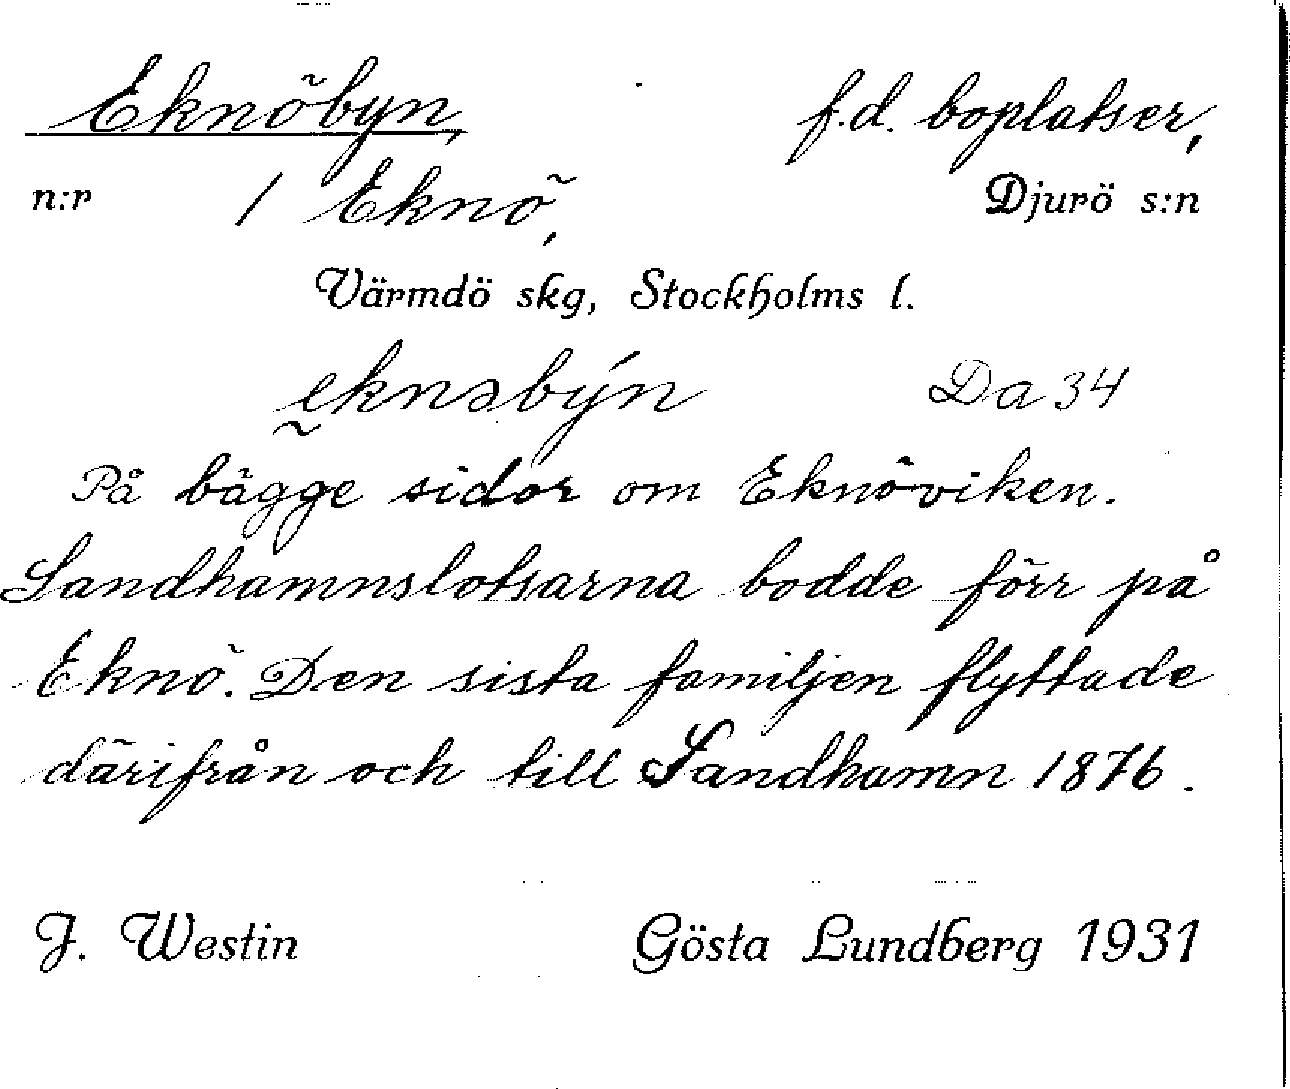 Eknöbyn, f.d. boplatser,
n:r 1 Eknö, Djurö s:n
Värmdö skg, Stockholms l.
ḛknəbýn Da 34
På bägge sidor om Eknöviken.
Sandhamnslotsarna bodde förr på
Eknö. Den sista familjen flyttade
därifrån och till Sandhamn 1876.
J. Westin Gösta Lundberg 1931